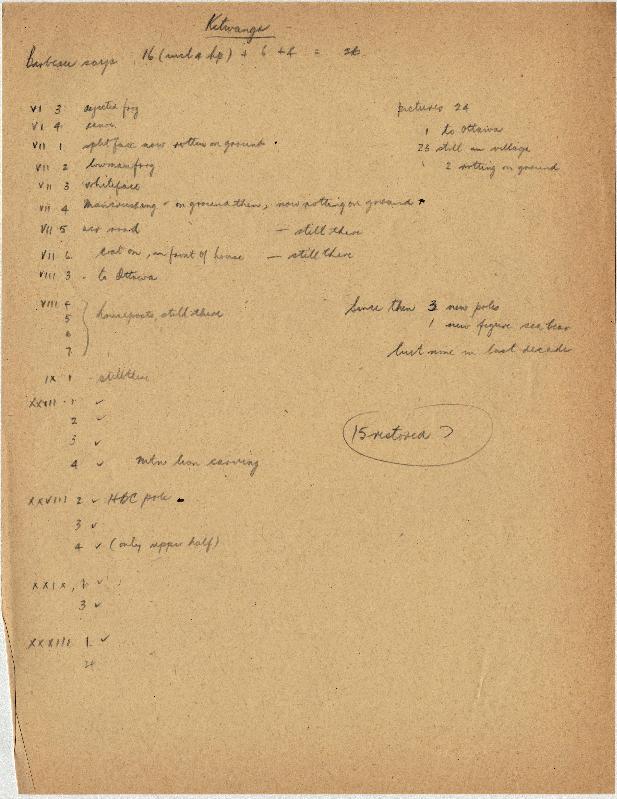 Kitwanga
Barbeau says 16 (incl 4 hp) + 6 + 4 = 26
VI 3 ejected frog
VI 4
VII 1 split face now rotten on ground
VII 2 lowmanfrog
VII 3 whiteface
VII 4 on ground then, now rotting on ground
VII 5 road - still there
VII 6 on, in front of house - still there
VIII 3 - to Ottawa
VIII 4
5 houseposts, still there
6
7
IX 1 - still there
XXVII 1 ✓
2 ✓
3 ✓
4 ✓ mtn lion carving
XXVIII 2 ✓ HBC pole
3 ✓
4 ✓ (only upper half)
XXIX, 1 ✓
3 ✓
XXXIII 1 ✓
2
pictures 24
1 to Ottawa
23 still in village
2 rotting on ground
Since then 3 new poles
1 new figure sea bear
but none in last decade
15 restored ?